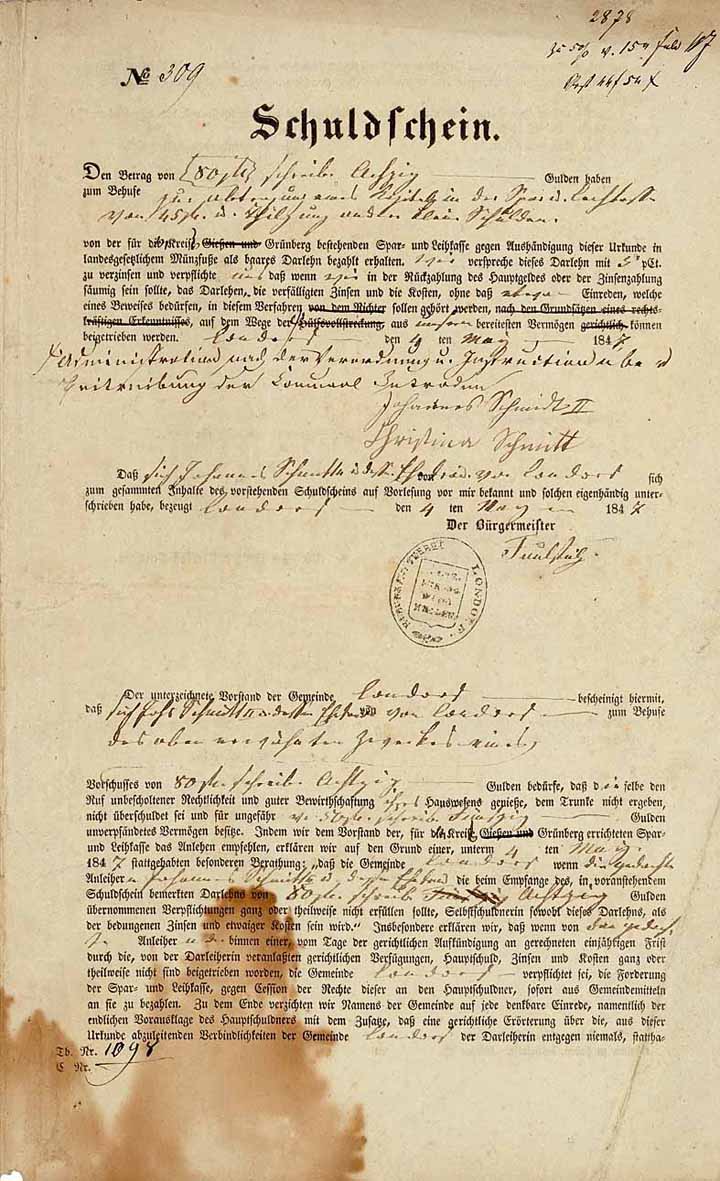 2878
No 309
Schuldschein.
Den Betrag von 80 fl schreibe Achtzig Gulden haben
zum Behufe
von 45 fl. u. Tilgung anderer kleiner Schulden.
von der für die Kreise Gießen und Grünberg bestehenden Spar- und Leihkasse gegen Aushändigung dieser Urkunde in
landesgesetzlichem Münzfuße als baares Darlehn bezahlt erhalten. Wir verspreche dieses Darlehn mit 5 pCt.
zu verzinsen und verpflichte uns daß wenn wir in der Rückzahlung des Hauptgeldes oder der Zinsenzahlung
säumig sein sollte, das Darlehen, die verfälligten Zinsen und die Kosten, ohne daß Einreden, welche
eines Beweises bedürfen, in diesem Verfahren von dem Richter sollen gehört werden, nach den Grundsätzen eines rechts-
kräftigen Erkenntnisses, auf dem Wege der Hülfsvollstreckung, aus unserm bereitesten Vermögen gerichtlich können
beigetrieben werden. Londorf den 4 ten May 1847
Administration nach der Verordnung u. Instruction über
Beitreibung der Communal Intraden
Johannes Schmidt II
Christina Schmitt
Daß sich Johannes Schmitt II u. dessen Ehefrau von Londorf sich
zum gesammten Inhalte des vorstehenden Schuldscheins auf Vorlesung vor mir bekannt und solchen eigenhändig unter-
schrieben habe, bezeugt Londorf den 4 ten May 1847
Der Bürgermeister
Faulstich.
LONDORF
Der unterzeichnete Vorstand der Gemeinde Londorf bescheinigt hiermit,
daß sich Johs Schmitt II u. dessen Ehefrau von von Londorf zum Behufe
des oben erwähnten Zweckes eines
Vorschusses von 80 fl. schreibe Achtzig Gulden bedürfe, daß dieselbe den
Ruf unbescholtener Rechtlichkeit und guter Bewirthschaftung ihres Hauswesens genieße, dem Trunke nicht ergeben,
nicht überschuldet sei und für ungefähr schreibe Gulden
unverpfändetes Vermögen besitze. Indem wir dem Vorstand der, für die Kreise Gießen und Grünberg errichteten Spar-
und Leihkasse das Anlehen empfehlen, erklären wir auf den Grund einer, unterm 4 ten May
1847 stattgehabten besonderen Berathung: „daß die Gemeinde Londorf wenn die gedachte
Anleiher Johannes Schmitt II u. dessen Ehefrau die beim Empfange des, in voranstehendem
Schuldschein bemerkten Darlehns von 80 fl. schreibe Achtzig Gulden
übernommenen Verpflichtungen ganz oder theilweise nicht erfüllen sollte, Selbstschuldnerin sowohl dieses Darlehns, als
der bedungenen Zinsen und etwaiger Kosten sein wird.“ Insbesondere erklären wir, daß wenn von den gedach-
ten Anleiher binnen einer, vom Tage der gerichtlichen Aufkündigung an gerechneten einjährigen Frist
durch die, von der Darleiherin veranlaßten gerichtlichen Verfügungen, Hauptschuld, Zinsen und Kosten ganz oder
theilweise nicht sind beigetrieben worden, die Gemeinde Londorf verpflichtet sei, die Forderung
der Spar- und Leihkasse, gegen Cession der Rechte dieser an den Hauptschuldner, sofort aus Gemeindemitteln
an sie zu bezahlen. Zu dem Ende verzichten wir Namens der Gemeinde auf jede denkbare Einrede, namentlich der
endlichen Vorausklage des Hauptschuldners mit dem Zusatze, daß eine gerichtliche Erörterung über die, aus dieser
Urkunde abzuleitenden Verbindlichkeiten der Gemeinde Londorf der Darleiherin entgegen niemals, stattha-
Tb. Nr. 1098
C Nr.